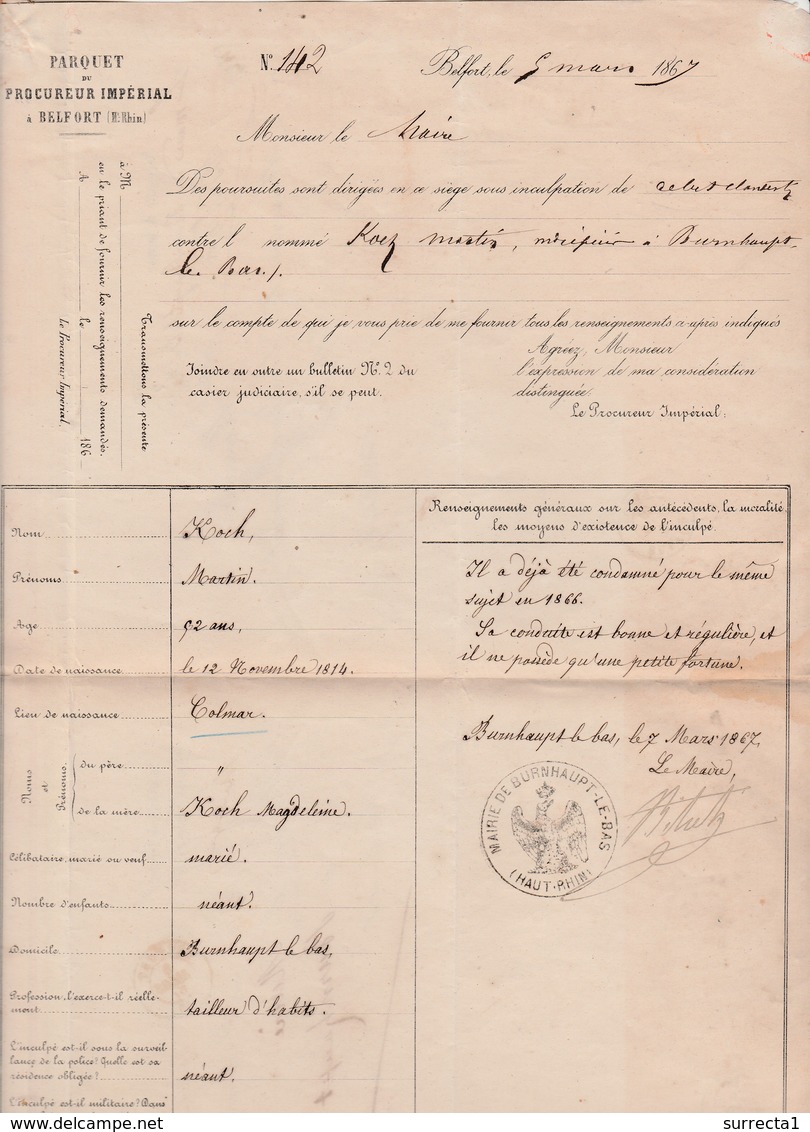 PARQUET
DU
PROCUREUR IMPÉRIAL
à BELFORT (Ht Rhin)
N° 142
Belfort, le 5 mars 1867
Monsieur le Maire
Des poursuites sont dirigées en ce siège sous inculpation de
contre l nommé Koch Martin, à Burnhaupt-
le Bas.
sur le compte de qui je vous prie de me fournir tous les renseignements ci-après indiqués
Agréez, Monsieur
l'expression de ma considération
distinguée.
Le Procureur Impérial:
Joindre en outre un bulletin N° 2 du
casier judiciaire, s'il se peut.
Transmettons la présente
à M
en le priant de fournir les renseignements demandés.
A le 186
Le Procureur Impérial,
Nom Koch,
Prénoms Martin.
Age 52 ans,
Date de naissance le 12 Novembre 1814.
Lieu de naissance Colmar.
Noms et Prénoms
du père "
de la mère Koch Magdeleine.
Célibataire, marié ou veuf marié.
Nombre d'enfants néant.
Domicile Burnhaupt le bas,
Profession, l'exerce-t-il réelle-
ment tailleur d'habits.
L'inculpé est-il sous la surveil-
lance de la police? Quelle est sa
résidence obligée? néant.
L'inculpé est-il militaire? Dans
Renseignements généraux sur les antécédents, la moralité,
les moyens d'existence de l'inculpé.
Il a déjà été condamné pour le même
sujet en 1866.
Sa conduite est bonne et régulière, et
il ne possède qu'une petite fortune.
Burnhaupt le bas, le 7 Mars 1867.
Le Maire,
MAIRIE DE BURNHAUPT-LE-BAS
(HAUT-RHIN)
surrecta1